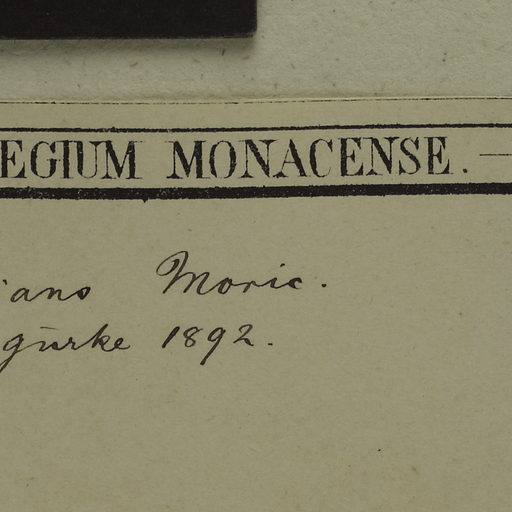 EGIUM MONACENSE.
ans Moric.
gürke 1892.